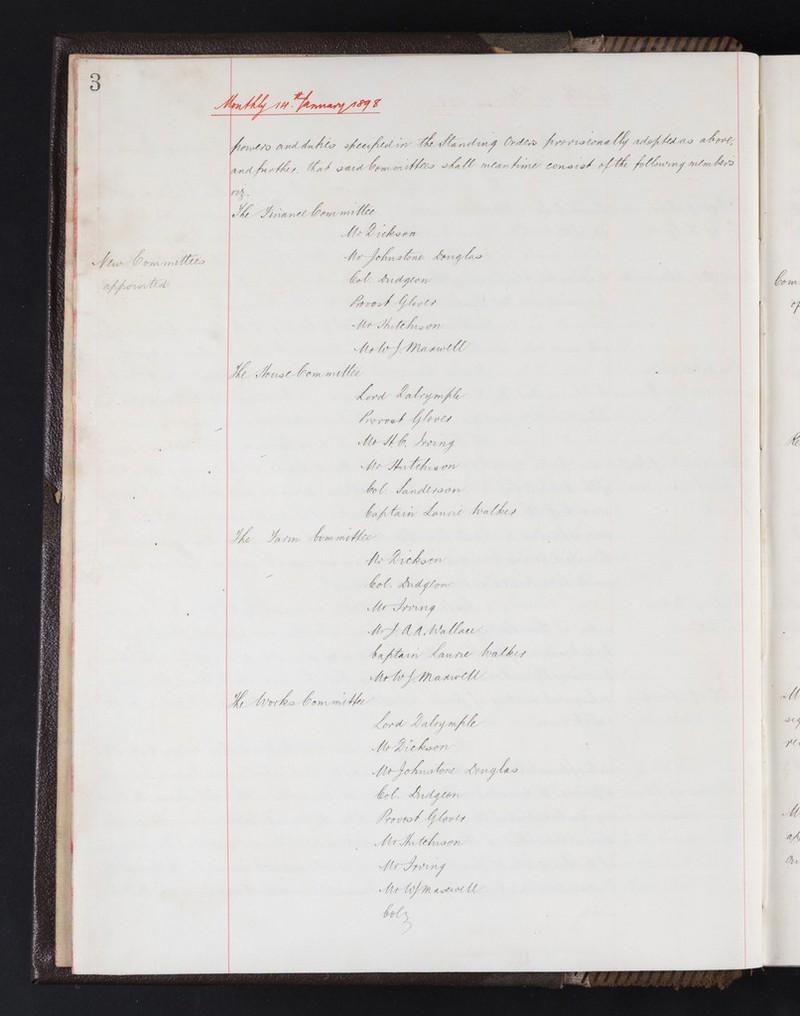 3
Monthly 14th January 1898
powers and duties specified in the Standing Orders provisionally adopted as above,
and further, that said Committees shall meantime consist of the following members
viz.
The Finance Committee
Mr Dickson
New Committees
appointed
Mr Johnstone Douglas
Col. Dudgeon
Provost Glover
Mr Hutchison
Mr W J Maxwell
The House Committee
Lord Dalrymple
Provost Glover
Mr H. C. Irving
Mr Hutchison
Col. Sanderson
Captain Laurie Walker
The Farm Committee
Mr Dickson
Col. Dudgeon
Mr Irving
Mr J. A. A. Wallace
Captain Laurie Walker
Mr W J Maxwell
The Works Committee
Lord Dalrymple
Mr Dickson
Mr Johnstone Douglas
Col. Dudgeon
Provost Glover
Mr Hutchison
Mr Irving
Mr W J Maxwell
Col
Com